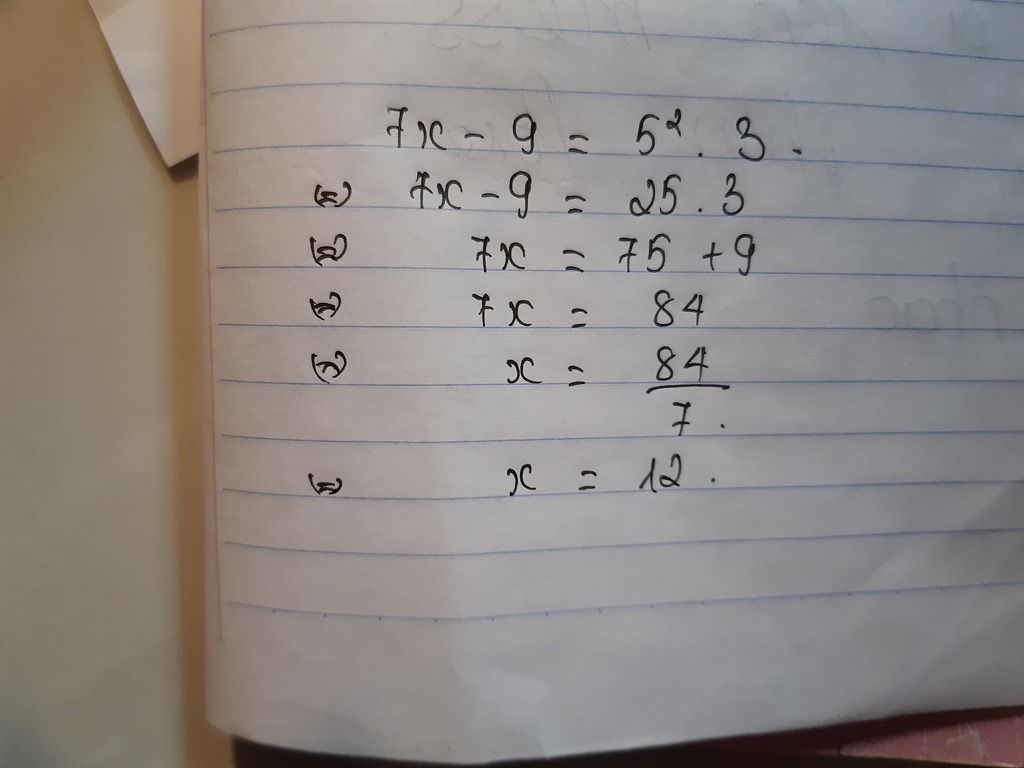 7x - 9 = 5² . 3 .
(=) 7x - 9 = 25 . 3
(=) 7x = 75 + 9
(=) 7x = 84
(=) x = 84/7 .
(=) x = 12 .